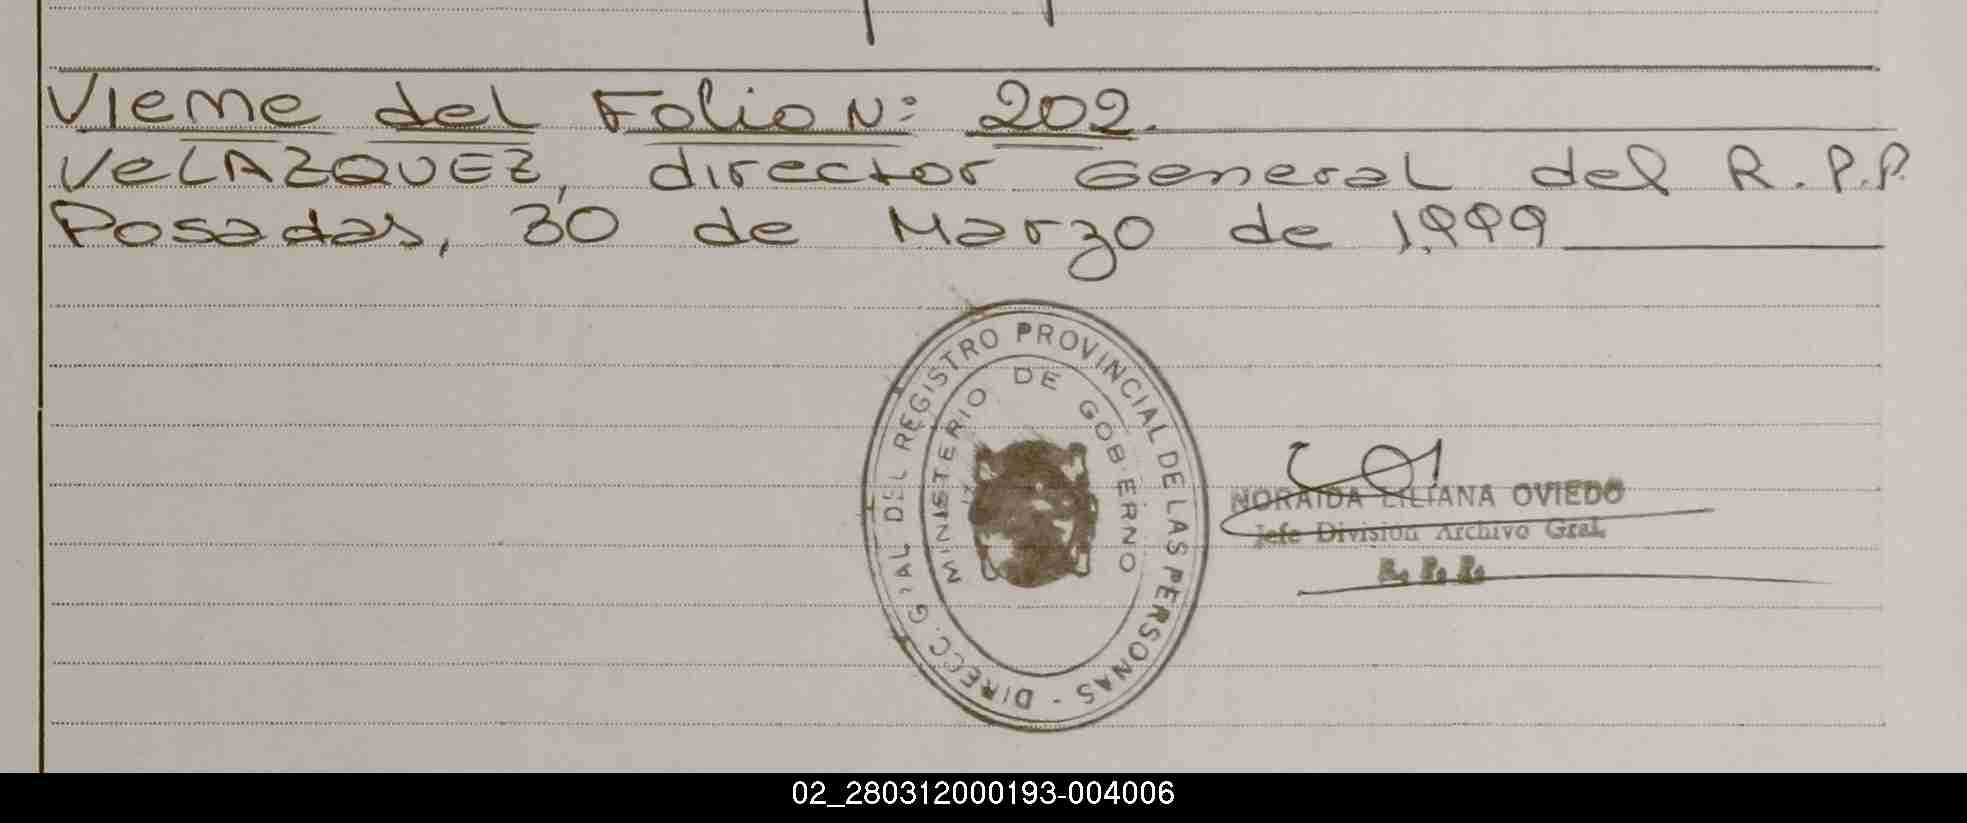 Viene del Folio N: 202.
VeLAZQUEZ, director General del R.P.P.
Posadas, 30 de Marzo de 1.999
DIRECC. GRAL DEL REGISTRO PROVINCIAL DE LAS PERSONAS -
MINISTERIO DE GOBIERNO
NORAIDA LILIANA OVIEDO
Jefe División Archivo Gral.
R. P. P.
02_280312000193-004006